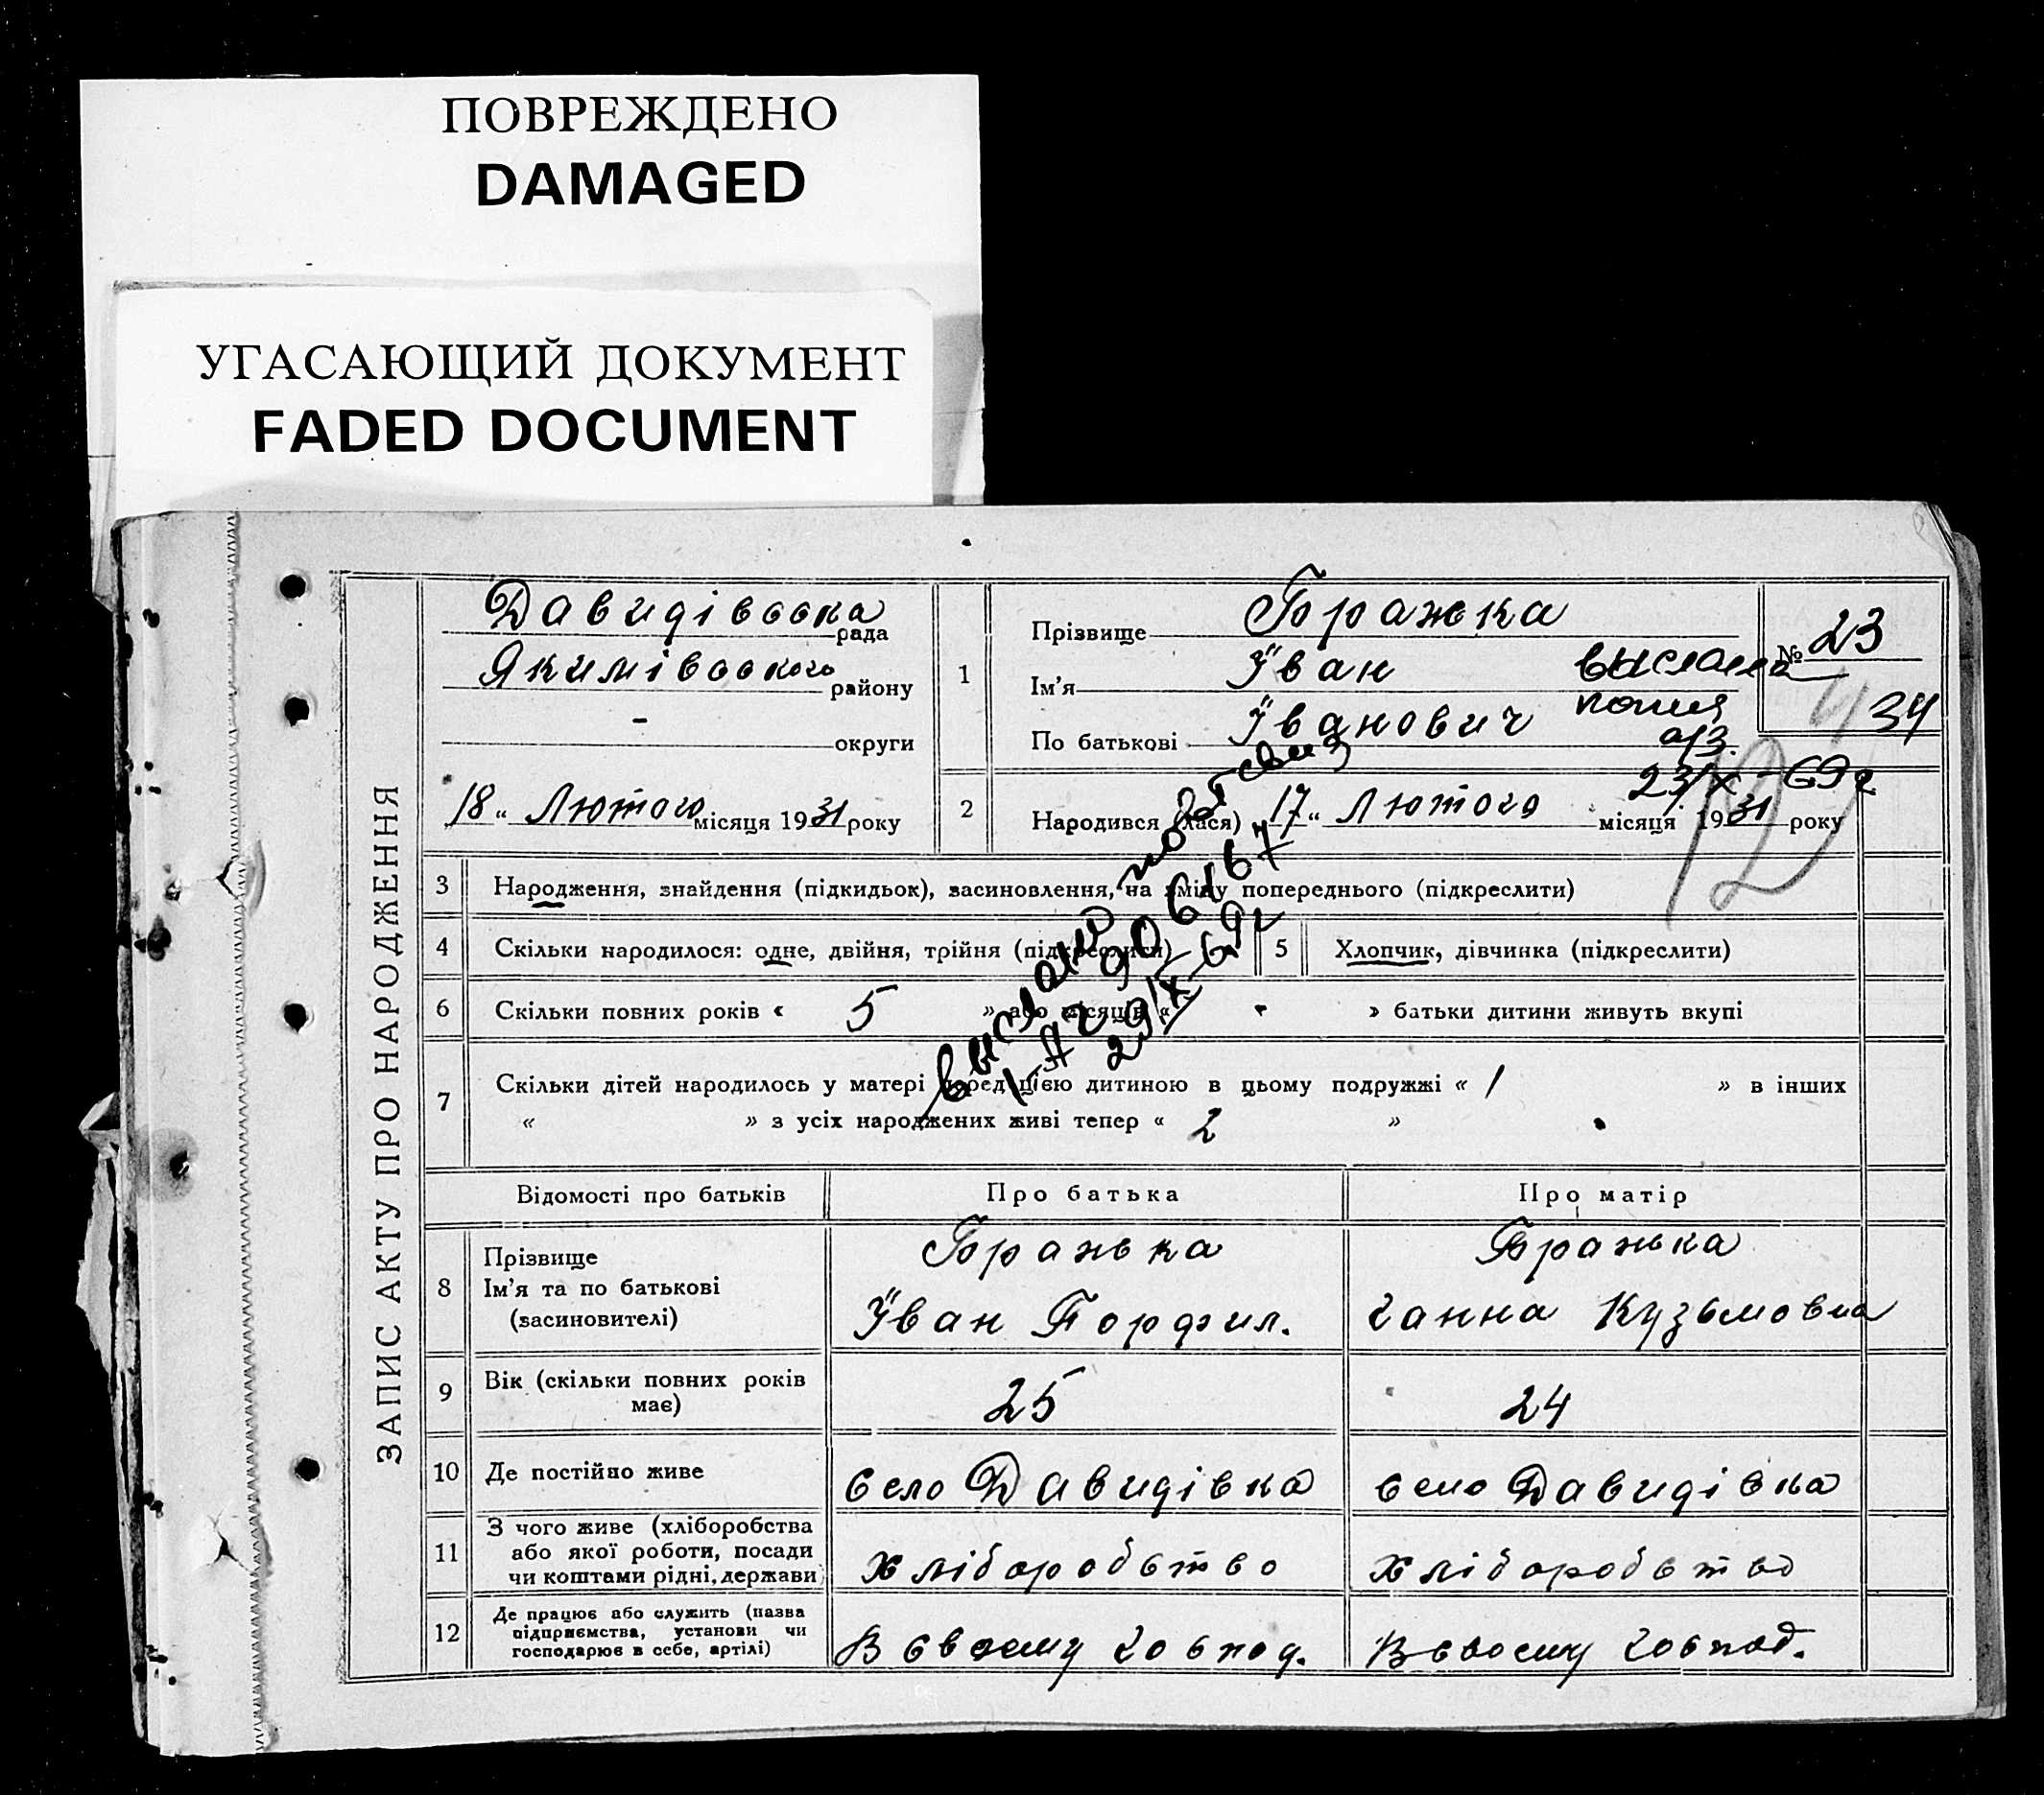 ПОВРЕЖДЕНО
DAMAGED
УГАСАЮЩИЙ ДОКУМЕНТ
FADED DOCUMENT
ЗАПИС АКТУ ПРО НАРОДЖЕННЯ
Давидівська рада
Якимівського району
- округи
18 " Лютого місяця 1931 року
1 Прізвище Бражка
Ім'я Іван
По батькові Іванович
№ 23
34
выслана
копия
а/з.
23/X-69г
12
2 Народився (лася) 17 " Лютого місяця 1931 року
3 Народження, знайдення (підкидьок), засиновлення, на зміну попереднього (підкреслити)
4 Скільки народилося: одне, двійня, трійня (підкреслити)
5 Хлопчик, дівчинка (підкреслити)
6 Скільки повних років « 5 » або місяців « - » батьки дитини живуть вкупі
7 Скільки дітей народилось у матері перед цією дитиною в цьому подружжі « 1 » в інших
« » з усіх народжених живі тепер « 2 »
выслано повт свид
29/X-69г
Відомості про батьків Про батька Про матір
8 Прізвище
Ім'я та по батькові
(засновителі)
Бражка
Іван Порфил.
Бражка
Ганна Кузьмовна
9 Вік (скільки повних років
має)
25
24
10 Де постійно живе
село Давидівка
село Давидівка
11 З чого живе (хліборобства
або якої роботи, посади
чи коштами рідні, держави)
хліборобство
хліборобство
12 Де працює або служить (назва
підприємства, установи чи
господарює в себе, артілі)
В своему господ.
В своему господ.